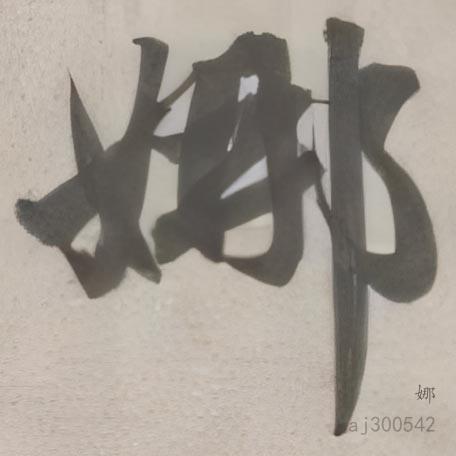 娜
娜
aj300542